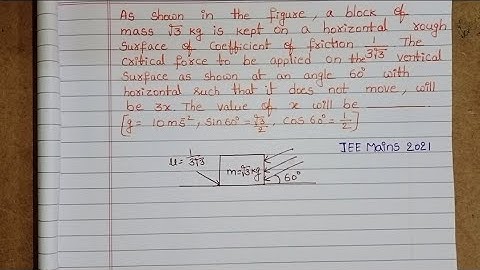 As shown in the figure, a block of
mass √3 kg is kept on a horizontal rough
surface of coefficient of friction 1/3√3 The
critical force to be applied on the vertical
surface as shown at an angle 60° with
horizontal such that it does not move, will
be 3x. The value of x will be ____
[g = 10ms², sin60° = √3/2, cos60° = 1/2]
JEE Mains 2021
μ = 1/3√3
m=√3kg
60°